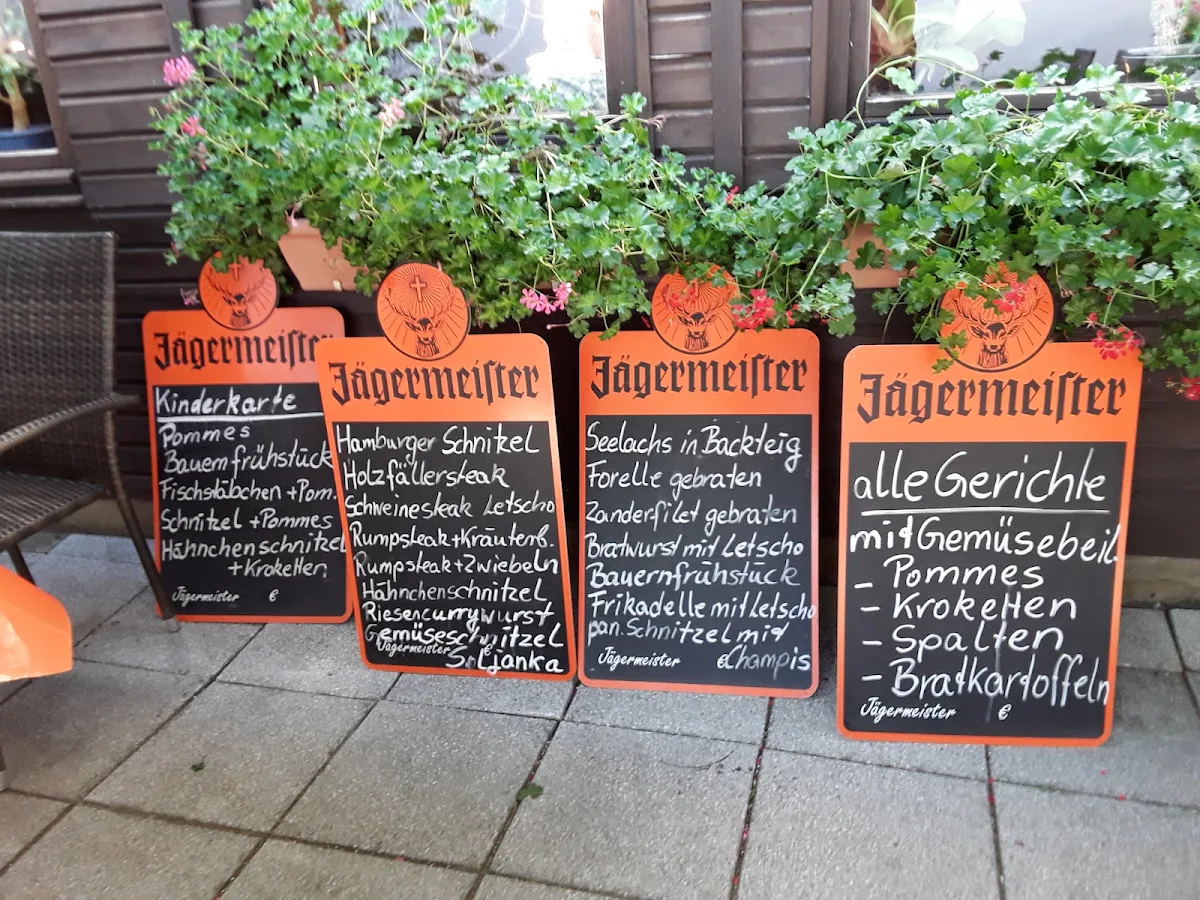 Jägermeister
Kinderkarte
Pommes
Bauernfrühstück
Fischstäbchen + Pom.
Schnitzel + Pommes
Hähnchenschnitzel
+ Kroketten
Jägermeister €
Jägermeister
Hamburger Schnitzel
Holzfällersteak
Schweinesteak Letscho
Rumpsteak + Kräuterb.
Rumpsteak + Zwiebeln
Hähnchenschnitzel
Riesencurrywurst
Gemüseschnitzel
Jägermeister €
Soljanka
Jägermeister
Seelachs in Backteig
Forelle gebraten
Zanderfilet gebraten
Bratwurst mit Letscho
Bauernfrühstück
Frikadelle mit Letscho
pan. Schnitzel mit
Jägermeister € Champis
Jägermeister
alle Gerichte
mit Gemüsebeil
- Pommes
- Kroketten
- Spalten
- Bratkartoffeln
Jägermeister €